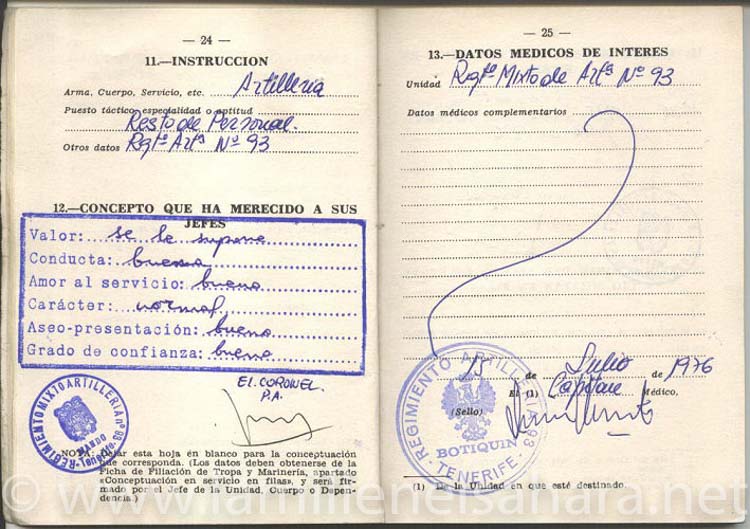 — 24 —
11.—INSTRUCCION
Arma, Cuerpo, Servicio, etc. Artillería
Puesto táctico, especialidad o aptitud
Resto de Personal.
Otros datos Rgtº Artª Nº 93
12.—CONCEPTO QUE HA MERECIDO A SUS
JEFES
Valor: se le supone
Conducta: buena
Amor al servicio: bueno
Carácter: normal
Aseo-presentación: bueno
Grado de confianza: bueno
EL CORONEL
P.A.
REGIMIENTO MIXTO ARTILLERIA nº 93
MANDO
Tenerife
NOTA: Dejar esta hoja en blanco para la conceptuación
que corresponda. (Los datos deben obtenerse de la
Ficha de Filiación de Tropa y Marinería, apartado
«Conceptuación en servicio en filas», y será fir-
mado por el Jefe de la Unidad, Cuerpo o Depen-
dencia.)
— 25 —
13.—DATOS MEDICOS DE INTERES
Unidad Rgtº Mixto de Artª Nº 93
Datos médicos complementarios
15 de Julio de 1976
El (1) Capitan Médico,
(Sello)
REGIMIENTO ARTILLERIA 93
BOTIQUIN
TENERIFE
(1) De la Unidad en que esté destinado.
© www.lamilienelsahara.net